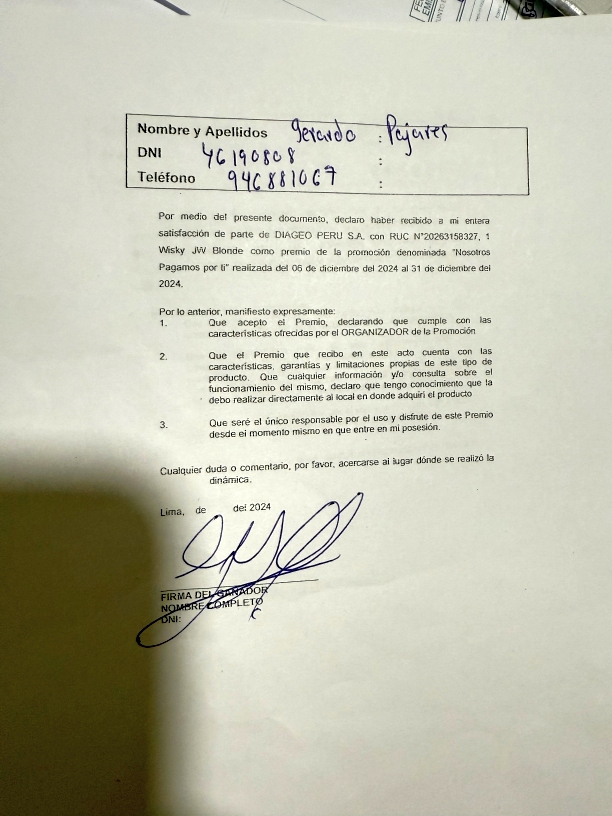 Nombre y Apellidos Gerardo : Pajares
DNI 46190808 :
Teléfono 946881067 :
Por medio del presente documento, declaro haber recibido a mi entera
satisfacción de parte de DIAGEO PERU S.A. con RUC N°20263158327, 1
Wisky JW Blonde como premio de la promoción denominada "Nosotros
Pagamos por ti" realizada del 06 de diciembre del 2024 al 31 de diciembre del
2024.
Por lo anterior, manifiesto expresamente:
1. Que acepto el Premio, declarando que cumple con las
características ofrecidas por el ORGANIZADOR de la Promoción
2. Que el Premio que recibo en este acto cuenta con las
características, garantías y limitaciones propias de este tipo de
producto. Que cualquier información y/o consulta sobre el
funcionamiento del mismo, declaro que tengo conocimiento que la
debo realizar directamente al local en donde adquirí el producto
3. Que seré el único responsable por el uso y disfrute de este Premio
desde el momento mismo en que entre en mi posesión.
Cualquier duda o comentario, por favor, acercarse al lugar dónde se realizó la
dinámica.
Lima, de del 2024
FIRMA DEL GANADOR
NOMBRE COMPLETO
DNI: